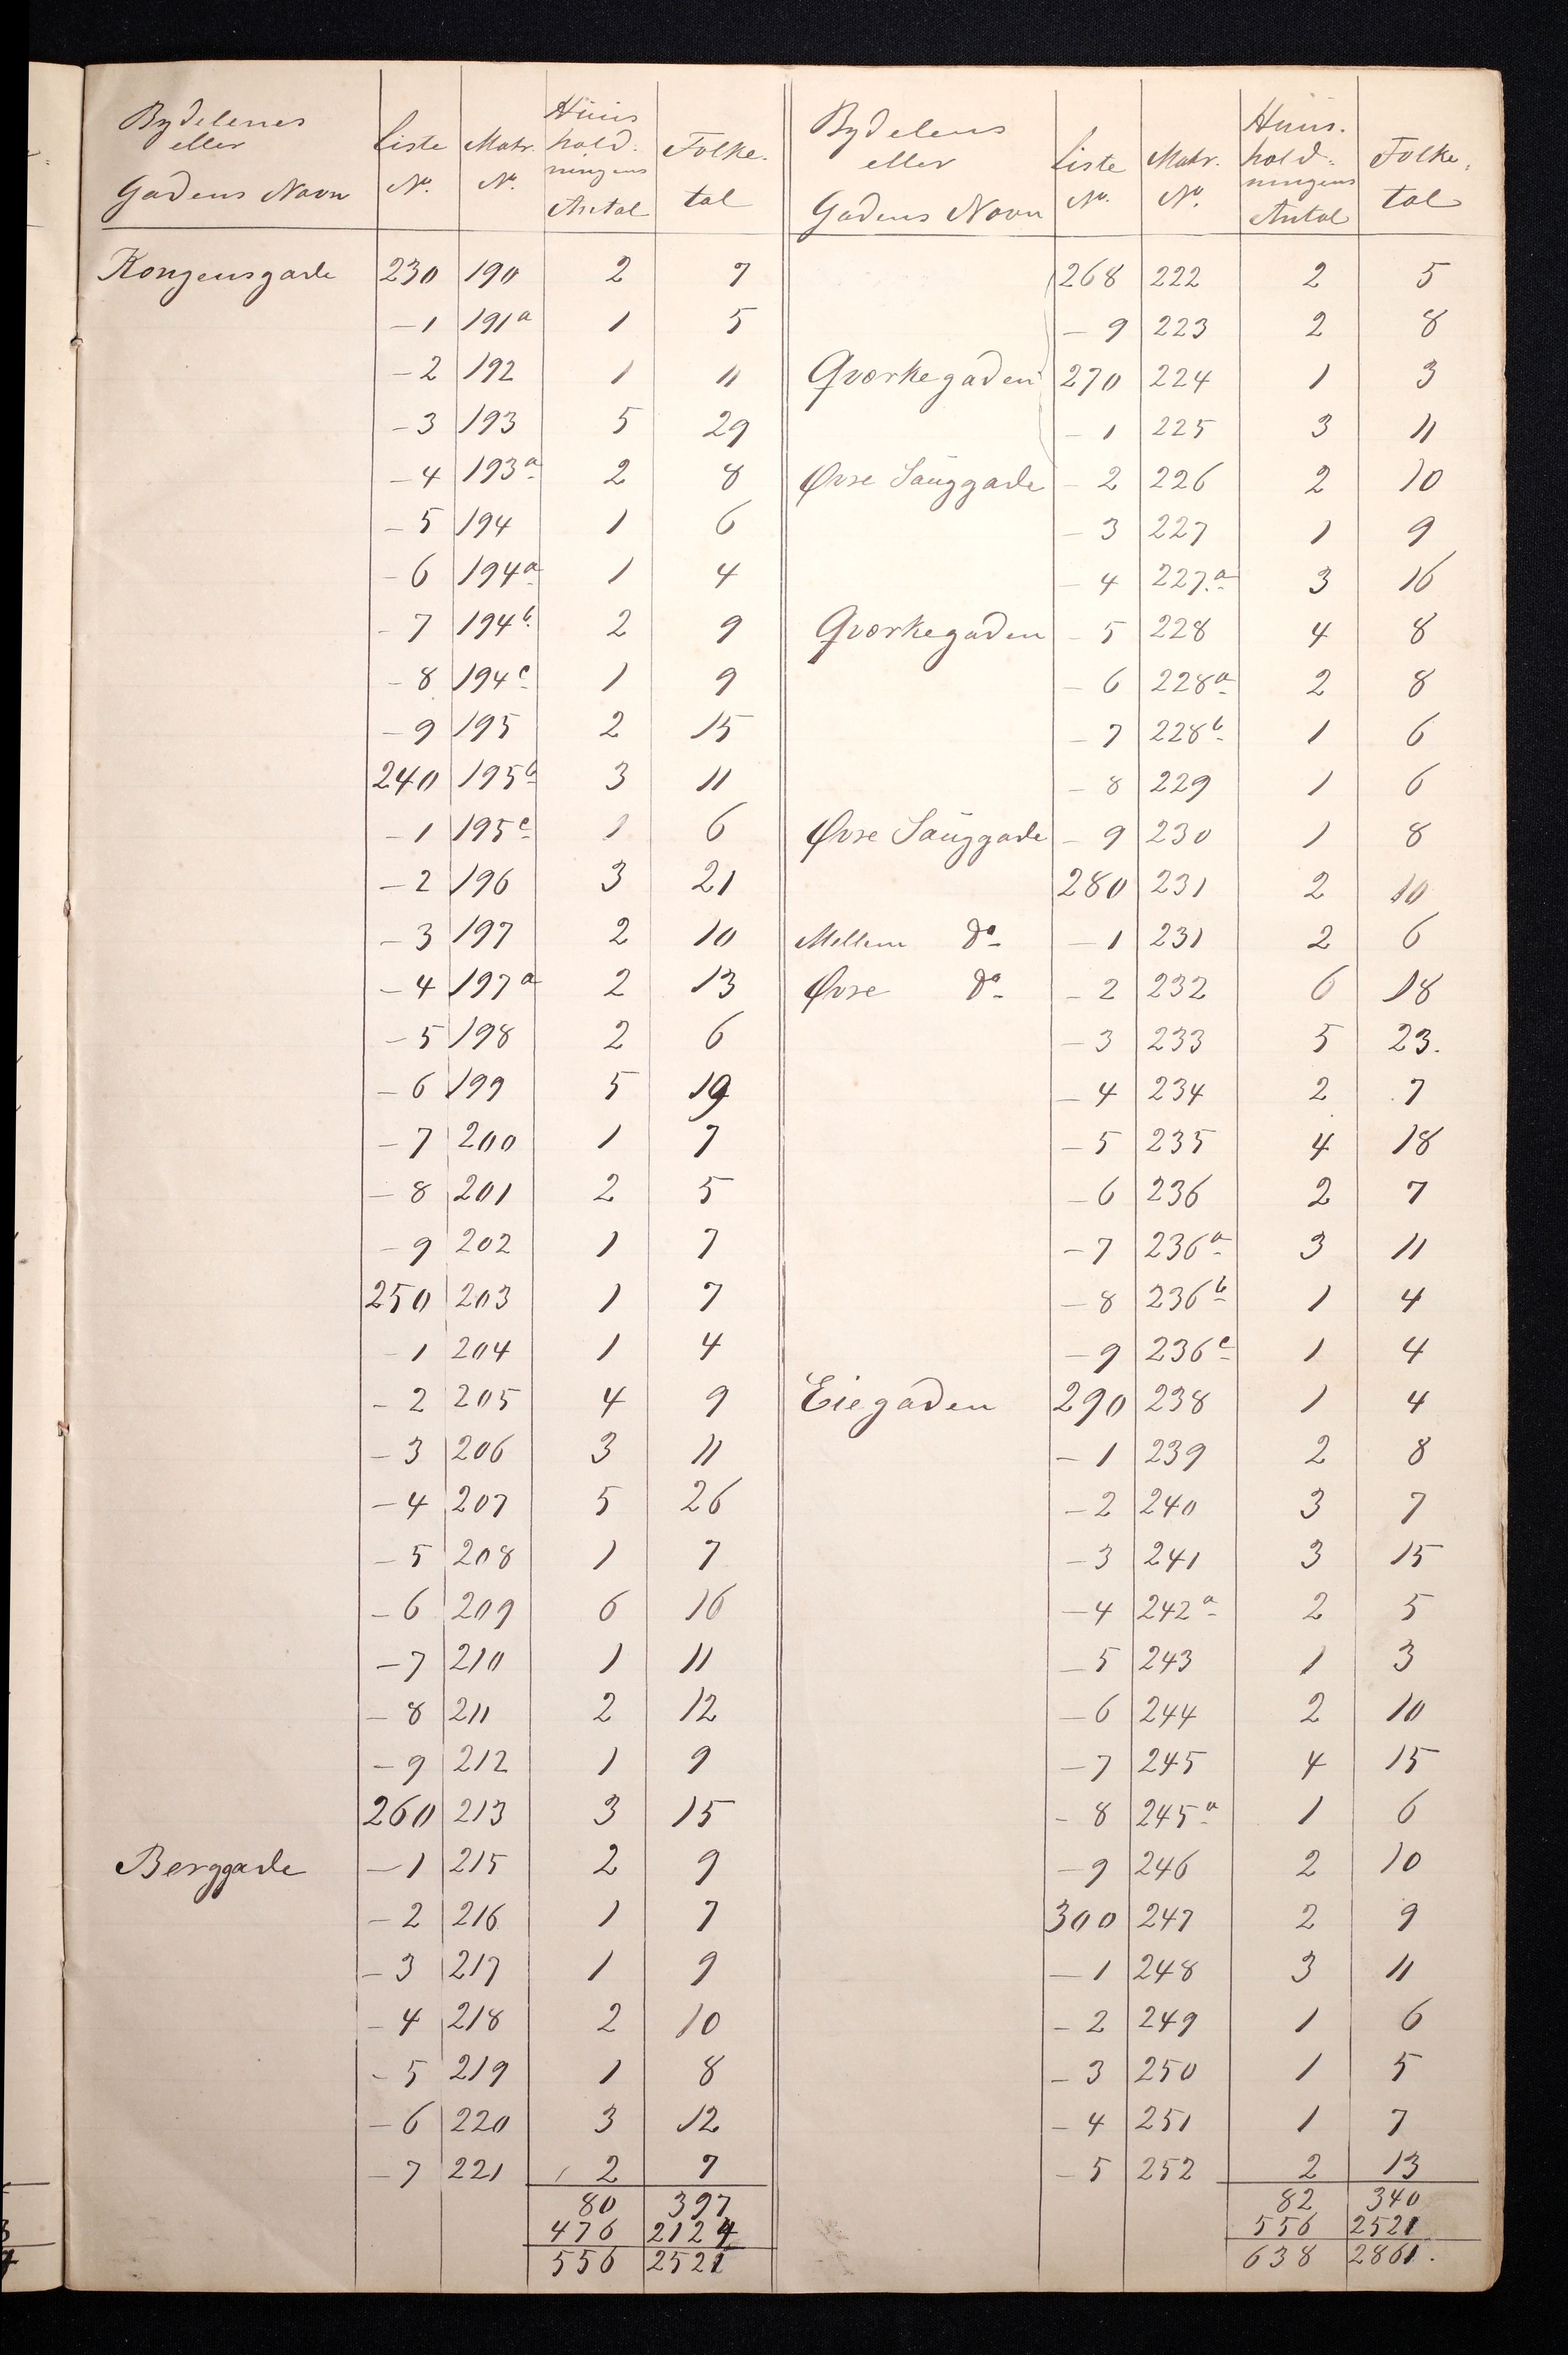 Bydelenes eller Gadens Navn | Liste No. | Matr. No. | Huus hold- ningens Antal | Folke- tal
Kongensgade 230 190 2 7
-1 191a 1 5
-2 192 1 11
-3 193 5 29
-4 193a 2 8
-5 194 1 6
-6 194a 1 4
-7 194b 2 9
-8 194c 1 9
-9 195 2 15
240 195b 3 11
-1 195c 1 6
-2 196 3 21
-3 197 2 10
-4 197a 2 13
-5 198 2 6
-6 199 5 19
-7 200 1 7
-8 201 2 5
-9 202 1 7
250 203 1 7
-1 204 1 4
-2 205 4 9
-3 206 3 11
-4 207 5 26
-5 208 1 7
-6 209 6 16
-7 210 1 11
-8 211 2 12
-9 212 1 9
260 213 3 15
Berggade -1 215 2 9
-2 216 1 7
-3 217 1 9
-4 218 2 10
-5 219 1 8
-6 220 3 12
-7 221 2 7
80 397
476 2124
556 2521
Bydelens eller Gadens Navn | Liste No. | Matr. No. | Huus- hold- ningens Antal | Folke- tal
268 222 2 5
-9 223 2 8
Qværkegaden 270 224 1 3
-1 225 3 11
Øvre Langgade -2 226 2 10
-3 227 1 9
-4 227.a 3 16
Qværkegaden -5 228 4 8
-6 228a 2 8
-7 228b 1 6
-8 229 1 6
Øvre Langgade -9 230 1 8
280 231 2 10
Mellem do -1 231 2 6
Øvre do -2 232 6 18
-3 233 5 23.
-4 234 2 7
-5 235 4 18
-6 236 2 7
-7 236a 3 11
-8 236b 1 4
-9 236c 1 4
Eiegaden 290 238 1 4
-1 239 2 8
-2 240 3 7
-3 241 3 15
-4 242a 2 5
-5 243 1 3
-6 244 2 10
-7 245 4 15
-8 245a 1 6
-9 246 2 10
300 247 2 9
-1 248 3 11
-2 249 1 6
-3 250 1 5
-4 251 1 7
-5 252 2 13
82 340
556 2521
638 2861.